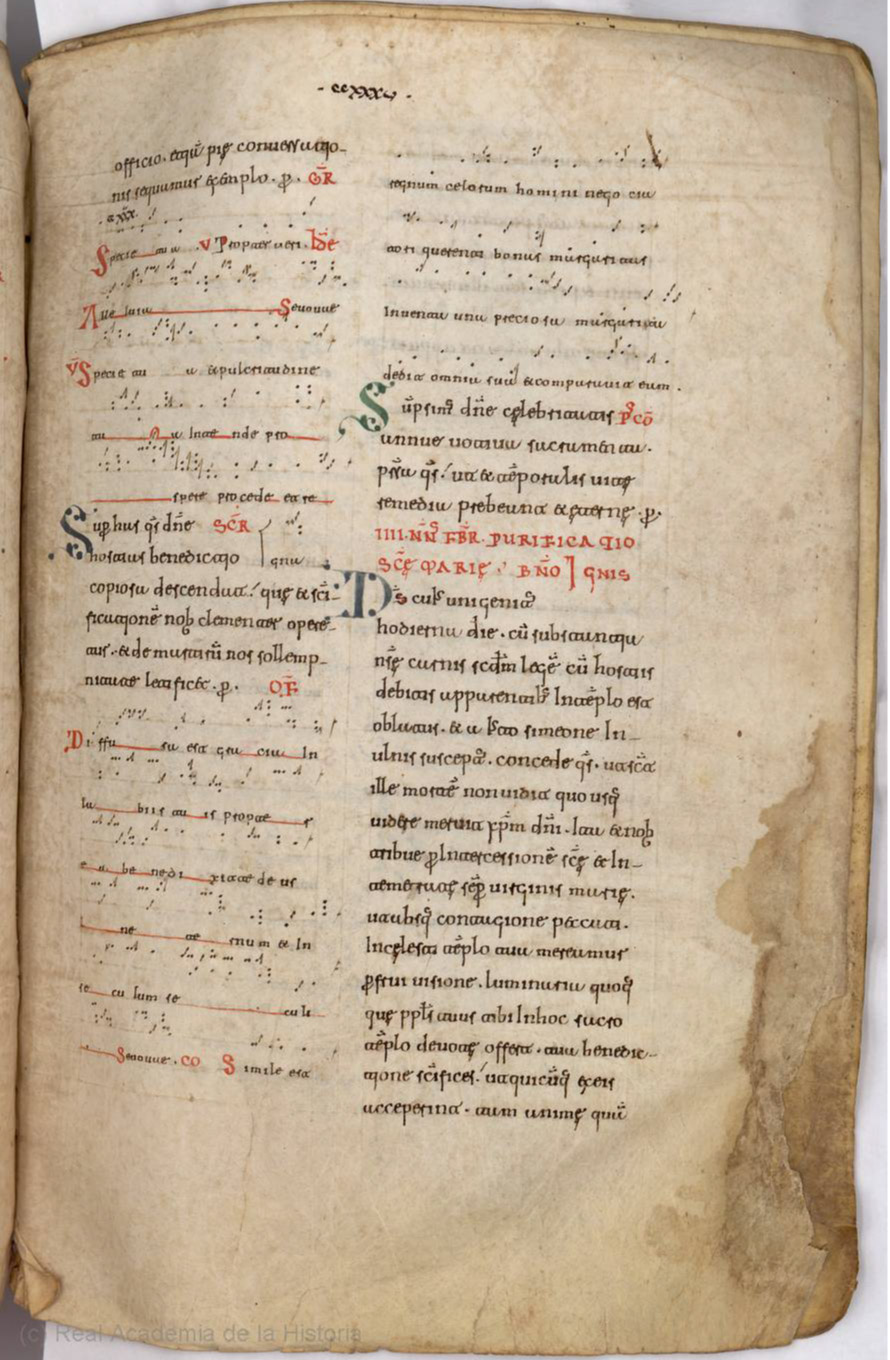 - ccxxxv -
officio. atq; pię conuersatio-
nis sequamur exemplo. p. GR
Specie tua V Propter ueri. 
Alle luia Seuouae
V Specie tu a & pulcritudine
tu a Inte nde pro
spere procede et re
Sup has qs dñe SCR
hostias benedictio gna
copiosa descendat. quę & sci-
ficationē nob clementer opere-
tur. & de martirū nos sollemp-
nitate letificet. p. OF
Diffu sa est gra tia In
la biis tu is propte r
e a be nedi xit te de us
In e te rnum & In
se cu lum se culi
Seuouae. CO Simile est
regnum celorum homini nego cia
tori querenti bonas margaritas
Inuenta una preciosa margarita
dedit omnia sua & comparauit eam.
Supsint dñe cęlebritatis PCO
annue uotiua sacramenta.
pstā qs. ut & tēporalis uitę
remediā prebeant & ęternę. p.
IIII. NNS FBR. PURIFICATIO
SCĘ MARIĘ. BNO IGNIS
Ds cuius unigenit
hodierna die. cū substantia
nrę carnis scdm legē cū hostiis
debitis appresentatus Intēplo est
oblatus. & a bto simeone In-
ulnis susceptus. concede qs. ut scā
ille mortē non uidit quousq
uidere meruit xpm dñi. Ita & nob
atibue pIntercessionē scę & In-
temeratę sēp uirginis marię.
ut absq contagione peccati.
Incęlesti tēplo tua mereamur
pfrui uisione. luminaria quoq
que ppls tuus tibi Inhoc sacro
tēplo deuotę offert. tua benedic-
tione scīfices. ut quicūq ex eis
acceperint. tam animę quā